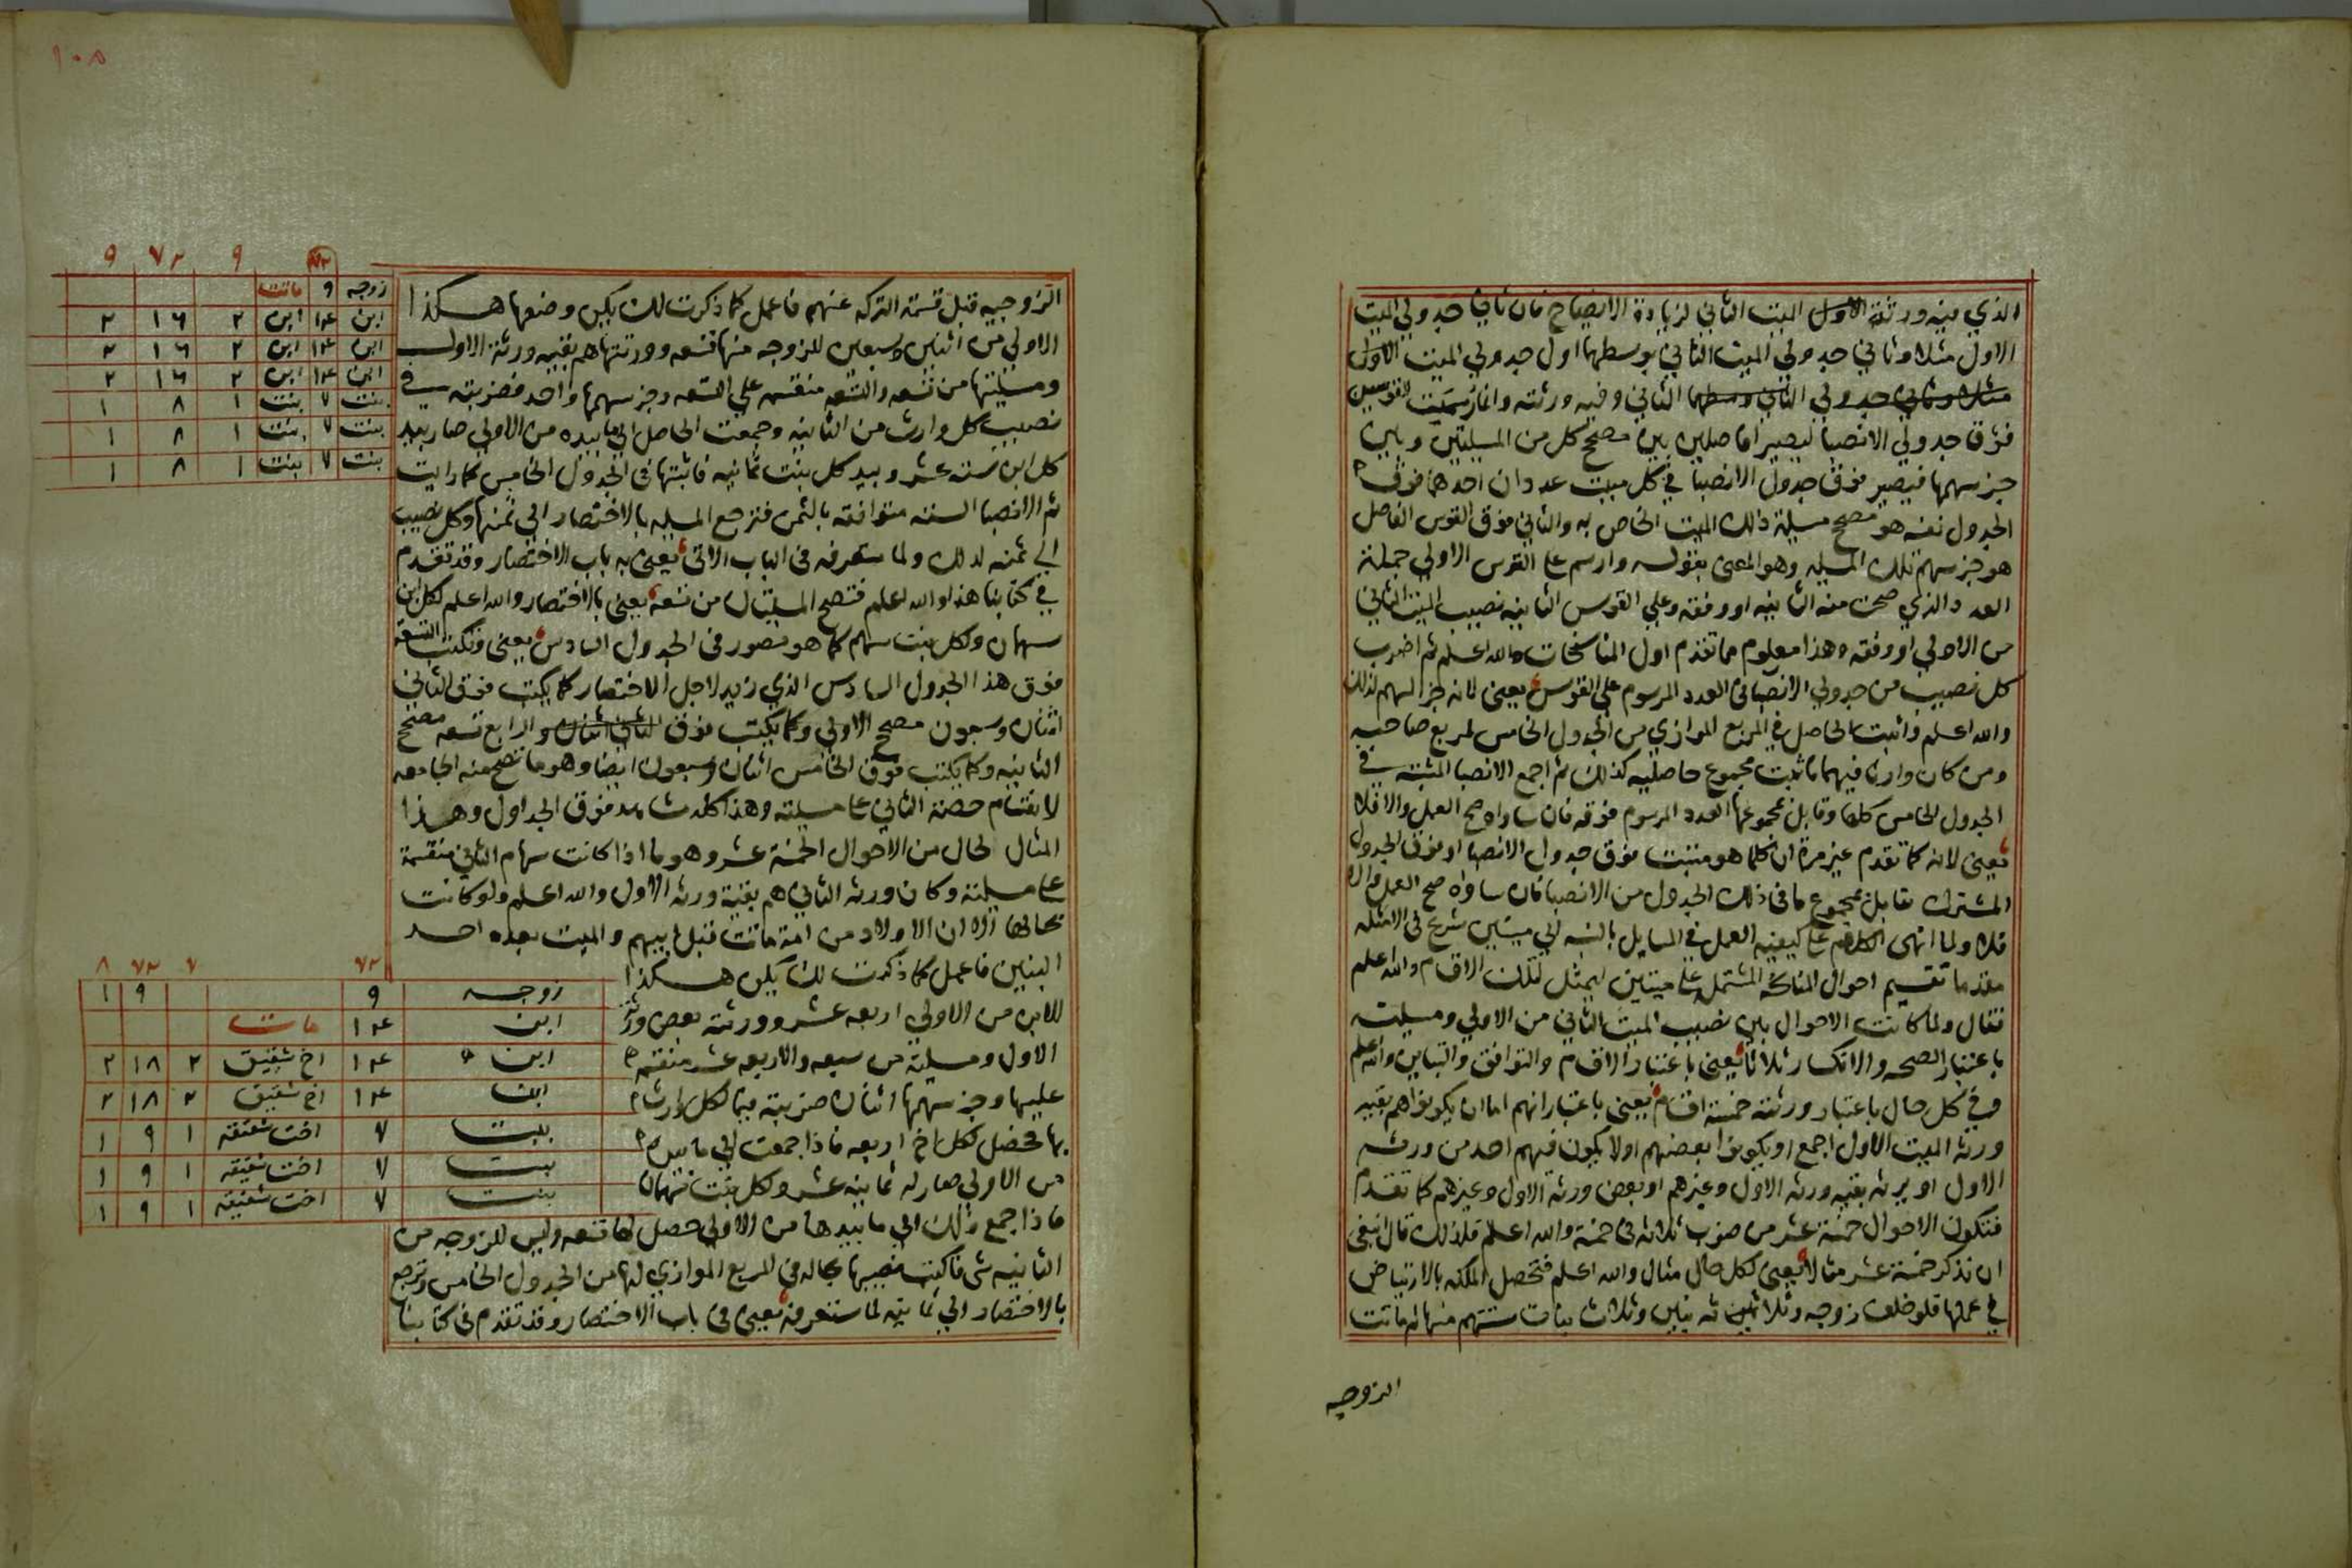 الذي فيه ورثة الاول الميت الثاني لزيادة الايضاح فان ثاني جدولي الميت
الاول مثلا وثاني جدولي الميت الثاني يوسطهما اول جدولي الميت الاول
الثاني وفيه ورثته وانما رسمت القوسين
فوق جدولي الانصبا ليصيرا فاصلين بين مصحح كل من المسيلتين وبين
جز سهمها فيصير فوق جدول الانصبا في كل ميت عددان احدهما فوق
الجدول نفسه هو مصحح مسيلة ذلك الميت الخاص به والثاني فوق القوس الفاصل
هو جز سهم تلك المسيله وهو المعنى بقوله وارسم على القوس الاولي جملة
العدد الذي صحت منه الثانيه او وفقه وعلي القوس الثانيه نصيب الميت الثاني
من الاولي او وفقه وهذا معلوم مما تقدم اول المناسخات والله اعلم ثم اضرب
كل نصيب من جدولي الانصبا في العدد المرسوم على القوس يعني لانه جز السهم لذلك
والله اعلم واثبت الحاصل في المربع الموازي من الجدول الخامس لمربع صاحبه
ومن كان وارثا فيهما فاثبت مجموع حاصليه كذلك ثم اجمع الانصبا المثبته في
الجدول الخامس كلها وقابل بمجموعها العدد المرسوم فوقه فان ساواه صح العمل والا فلا
يعني لانه كما تقدم غير مرة ان كلما هو مثبت فوق جدول الانصبا او فوق الجدول
المشترك تقابل بمجموع ما في ذلك الجدول من الانصبا فان ساواه صح العمل والا
فلا ولما انهى الكلام على كيفيه العمل في المسايل بالنسبه الي ميتين شرع في الامثله
مقدما تقسيم احوال المناسخه المشتمله على ميتين ليمثل لتلك الاقسام والله اعلم
فقال ولما كانت الاحوال بين نصيب الميت الثاني من الاولي ومسيلته
باعتبار الصحه والانكسار ثلاثا يعني باعتبار الاقسام والتوافق والتباين والله اعلم
وفي كل حال باعتبار ورثته خمسة اقسام يعني باعتبار انهم اما ان يكونوا هم بقيه
ورثه الميت الاول اجمع او يكونوا بعضهم او لا يكون فيهم احد من ورثه
الاول او يرثه بقيه ورثه الاول وغيرهم او بعض ورثه الاول وغيرهم كما تقدم
فتكون الاحوال خمسة عشر من ضرب ثلاثه في خمسة والله اعلم فلذلك قال انبغى
ان نذكر خمسة عشر مثالا يعني لكل حال مثال والله اعلم فتحصل الملكه بالارتياض
في عملها فلو خلف زوجه وثلاثة بنين وثلاث بنات ستتهم منها ثم ماتت
الزوجه
١٠٥
الزوجيه قبل قسمة التركه عنهم فاعمل كما ذكرت لك يكن وضعها هكذا
الاولي من اثنين وسبعين للزوجه منها تسعه وورثتها هم بقيه ورثة الاول
ومسيلتها من تسعه والتسعه منقسمه على التسعه وجز سهمها واحد فضربته في
نصيب كل وارث من الثانيه وجمعت الحاصل الي ما بيده من الاولي صار بيد
كل ابن ستة عشر وبيد كل بنت ثمانيه فاثبتها في الجدول الخامس كما رايت
ثم الانصبا الستة متوافقه بالثمن فترجع المسيله بالاختصار الي ثمنها وكل نصيب
الي ثمنه لذلك ولما ستعرفه في الباب الاتي يعني به باب الاختصار وقد تقدم
في كتابنا هذا والله اعلم فتصح المسيلتان من تسعه يعني بالاختصار والله اعلم لكل ابن
سهمان ولكل بنت سهم كما هو مصور في الجدول السادس يعني وتكتب التسعه
فوق هذا الجدول السادس الذي زيد لاجل الاختصار كما يكتب فوق الثاني
اثنان وسبعون مصحح الاولي وكما يكتب فوق الرابع تسعه مصحح
الثانيه وكما يكتب فوق الخامس اثنان وسبعون ايضا وهو ما تصح منه الجامعه
لانقسام حصة الثاني على مسيلته وهذا كله شاهد فوق الجداول وهذا
المثال لحال من الاحوال الخمسة عشر وهو ما اذا كانت سهام الثاني منقسمة
على مسيلته وكان ورثه الثاني هم بقية ورثه الاول والله اعلم ولو كانت
بحالها الا ان الاولاد من امة ماتت قبل ابيهم والميت بعده احد
البنين فاعمل كما ذكرت لك يكن هكذا
للابن من الاولي اربعه عشر وورثته بعض ورثة
الاول ومسيلته من سبعه والاربعه عشر منقسمه
عليها وجز سهمها اثنان ضربته فيما لكل وارث
بها فحصل لكل اخ اربعه فاذا جمعت الي ما بيده
من الاولي صار له ثمانيه عشر ولكل بنت سهمان
فاذا جمع ذلك الي ما بيدها من الاولي حصل لها تسعه وليس للزوجه من
الثانيه شي فاكتب نصيبها بحاله في المربع الموازي لها من الجدول الخامس وترجع
بالاختصار الي ثمانيه لما ستعرفه يعني في باب الاختصار وقد تقدم في كتابنا
٧٢ ٩ ٧٢ ٩
زوجه ٩ ماتت
ابن ١٤ ابن ٢ ١٦ ٢
ابن ١٤ ابن ٢ ١٦ ٢
ابن ١٤ ابن ٢ ١٦ ٢
بنت ٧ بنت ١ ٨ ١
بنت ٧ بنت ١ ٨ ١
بنت ٧ بنت ١ ٨ ١
٧٢ ٧ ٧٢ ٨
زوجه ٩ ٩ ١
ابن ١٤ مات
ابن ١٤ اخ شقيق ٢ ١٨ ٢
ابن ١٤ اخ شقيق ٢ ١٨ ٢
بنت ٧ اخت شقيقه ١ ٩ ١
بنت ٧ اخت شقيقه ١ ٩ ١
بنت ٧ اخت شقيقه ١ ٩ ١